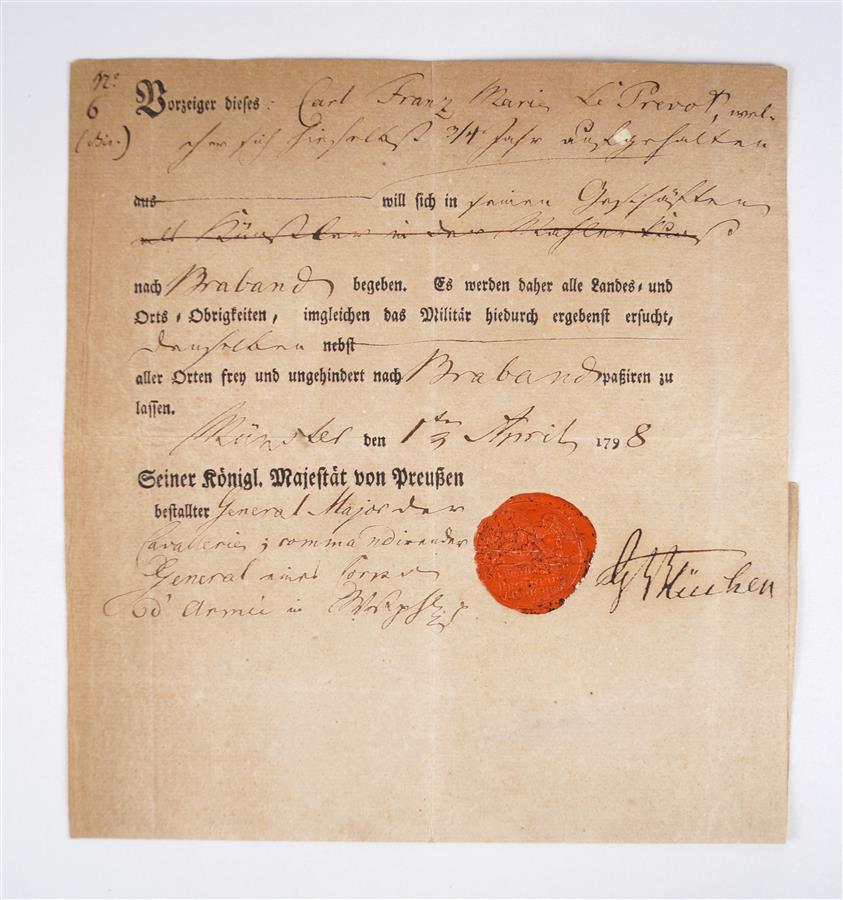 No.
6
Vorzeiger dieses: Carl Franz Marie Le Prevot, wel-
cher sich hieselbst 3/4 Jahr aufgehalten
aus will sich in seinen Geschäften
als Künstler in der Mahler Kunst
nach Braband begeben. Es werden daher alle Landes- und
Orts-Obrigkeiten, imgleichen das Militär hiedurch ergebenst ersucht,
denselben nebst
aller Orten frey und ungehindert nach Braband paßiren zu
lassen.
Münster den 1ten April 1798
Seiner Königl. Majestät von Preußen
bestallter General Major der
Cavallerie, commandirender
General eines Corps
d'Armée in Westph:
Blücher